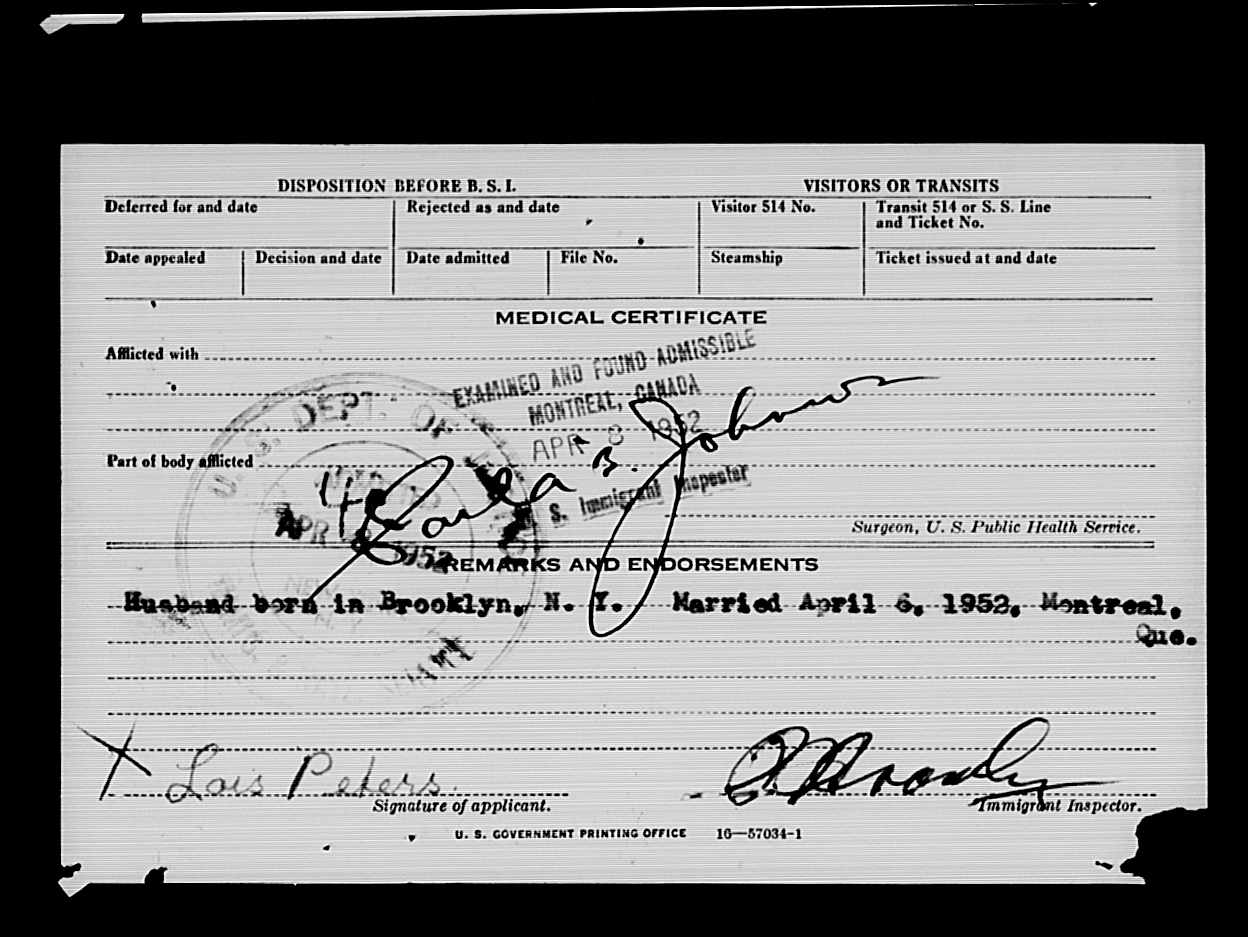 DISPOSITION BEFORE B. S. I.
VISITORS OR TRANSITS
Deferred for and date
Rejected as and date
Visitor 514 No.
Transit 514 or S. S. Line and Ticket No.
Date appealed
Decision and date
Date admitted
File No.
Steamship
Ticket issued at and date
MEDICAL CERTIFICATE
Afflicted with
EXAMINED AND FOUND ADMISSIBLE
MONTREAL, CANADA
APR 8 1952
U. S. Immigrant Inspector
U. S. DEPT. OF
ADMITTED
APR 8 1952
Part of body afflicted
Surgeon, U. S. Public Health Service.
REMARKS AND ENDORSEMENTS
Husband born in Brooklyn, N. Y. Married April 6, 1952, Montreal, Que.
X Lois Peters.
Signature of applicant.
Immigrant Inspector.
U. S. GOVERNMENT PRINTING OFFICE 16—57034-1